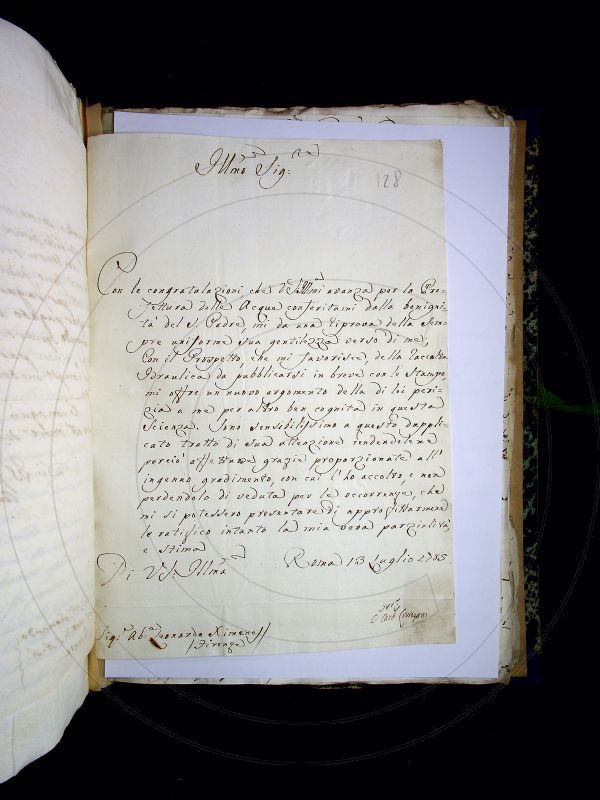 Illmo Sig:re
128
Con le congratulazioni che VS Illma avanza per la Pre-
fettura delle Acque conferitami dalla benigni-
tà del S. Padre, mi da una riprova della sem-
pre uniforme sua gentilezza verso di me,
Con il Prospetto, che mi favorisce, della raccolta
Idraulica da pubblicarsi in breve con le stampe
mi offre un nuovo argomento della di lei peri-
zia a me per altro ben cognita in questa
scienza. Sono sensibilissimo a questo duppli-
cato tratto di sua attenzione rendendolene
perciò affettuose grazie proporzionate all'
ingenuo gradimento, con cui l'ho accolto, e non
perdendolo di veduta per le occorrenze, che
mi si potessero presentare di approfittarmene
le ratifico intanto la mia vera parzialità,
e stima
Di VS. Illma Roma 13 Luglio 1785
Sig:r Ab:e Leonardo Ximenes
Firenze